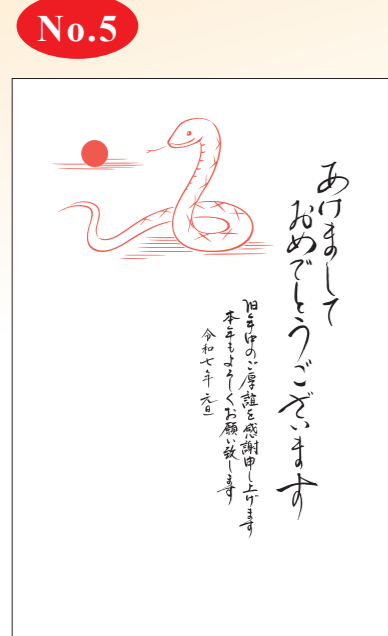 No.5
あけまして
おめでとうございます
旧年中のご厚誼を感謝申し上げます
本年もよろしくお願い致します
令和七年 元旦